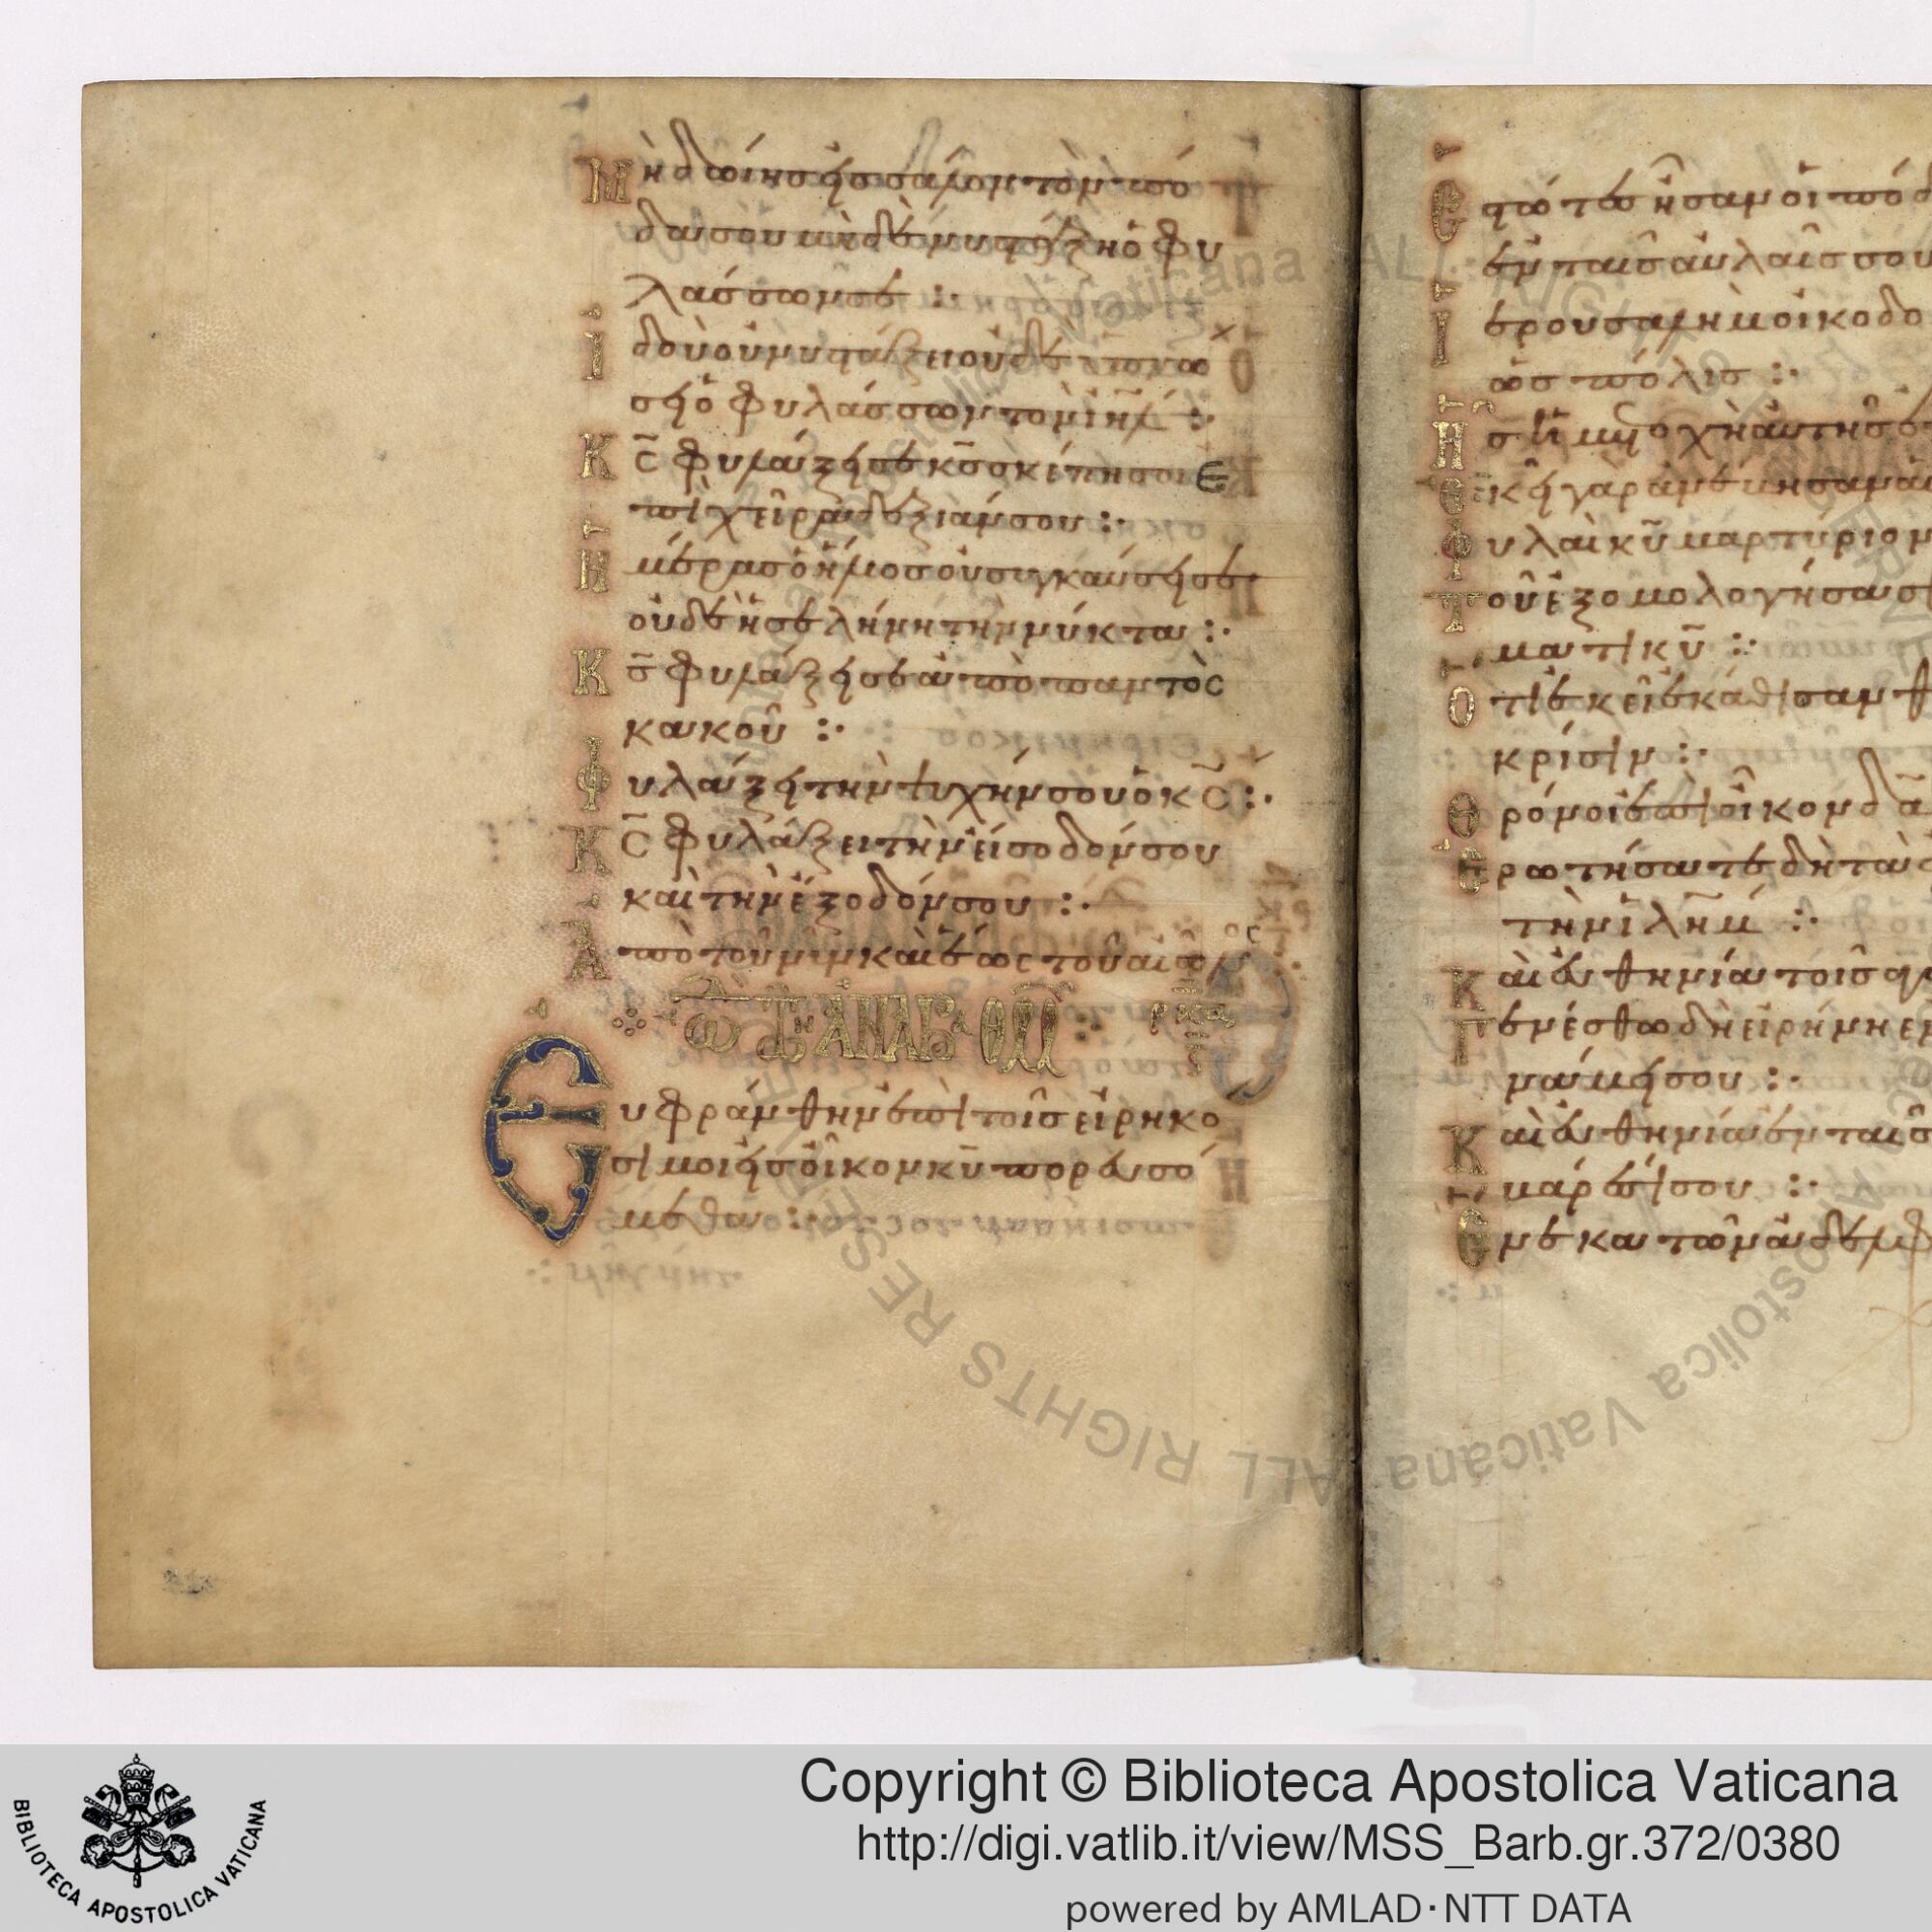 Μὴ δώιησ εἰσ σάλον τὸν πό
δα σου μηδὲ νυστάξη ὁ φυ
λάσσων σε :·
Ἰδοὺ οὐ νυστάξει οὐδὲ ὑπνώ
σει ὁ φυλάσσων τὸν ἰη̅λ :·
Κ̅ς φυλάξει σε κ̅σ σκέπη σοι ἐ
πὶ χεῖρα δεξιάν σου :·
Ἡμέρασ ὁ ἥλιοσ οὐ συγκαύσει σε
οὐδὲ ἡ σελήνη τὴν νύκτα :·
Κ̅σ φυλάξει σε ἀπὸ παντὸς
κακοῦ :·
Φυλάξει τὴν ψυχήν σου ὁ κ̅ς :·
Κ̅ς φυλάξει τὴν εἴσοδόν σου
καὶ τὴν ἔξοδόν σου :·
Ἀπὸ τοῦ νῦν καὶ ἕως τοῦ αἰῶνος
ὠδὴ τῶν ἀναβαθμῶν ρκα
Εὐφράνθην ἐπὶ τοῖσ εἰρηκό
σι μοι εἰσ οἶκον κ̅υ πορευσό
μεθα :·
Ἑστῶτεσ ἦσαν οἱ πόδ
ἐν ταῖσ αὐλαῖσ σου
Ἱερουσαλὴμ οἰκοδο
ὡσ πόλισ :·
Ἧσ ἡ μετοχὴ αὐτῆσ
Ἐκεῖ γὰρ ἀνέβησαν αἱ
Φυλαὶ κ̅υ μαρτύριον
Τοῦ ἐξομολογήσασ
ματι κ̅υ :·
Ὅτι ἐκεῖ ἐκάθισαν θ
κρίσιν :·
Θρόνοι ἐπὶ οἶκον δα̅
Ἐρωτήσατε δὴ τὰ
τὴν ἰλη̅μ :·
Καὶ εὐθηνία τοῖσ ἀγ
Γενέσθω δὴ εἰρήνη ἐ
νάμει σου :·
Καὶ εὐθηνία ἐν ταῖσ
βάρεσι σου :·
Ἕνεκα τῶν ἀδελφ
Copyright © Biblioteca Apostolica Vaticana
http://digi.vatlib.it/view/MSS_Barb.gr.372/0380
powered by AMLAD·NTT DATA
BIBLIOTECA APOSTOLICA VATICANA